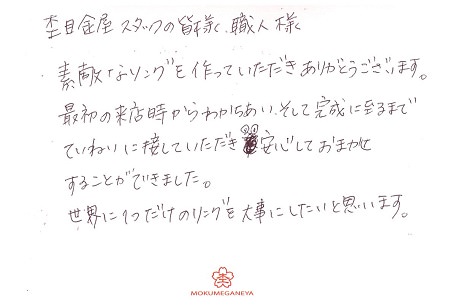 杢目金屋 スタッフの皆様、職人様
素敵なリングを作っていただきありがとうございます。
最初の来店時からわかちあい、そして完成に至るまで
ていねいに接していただき安心しておまかせ
することができました。
世界に1つだけのリングを大事にしたいと思います。
MOKUMEGANEYA